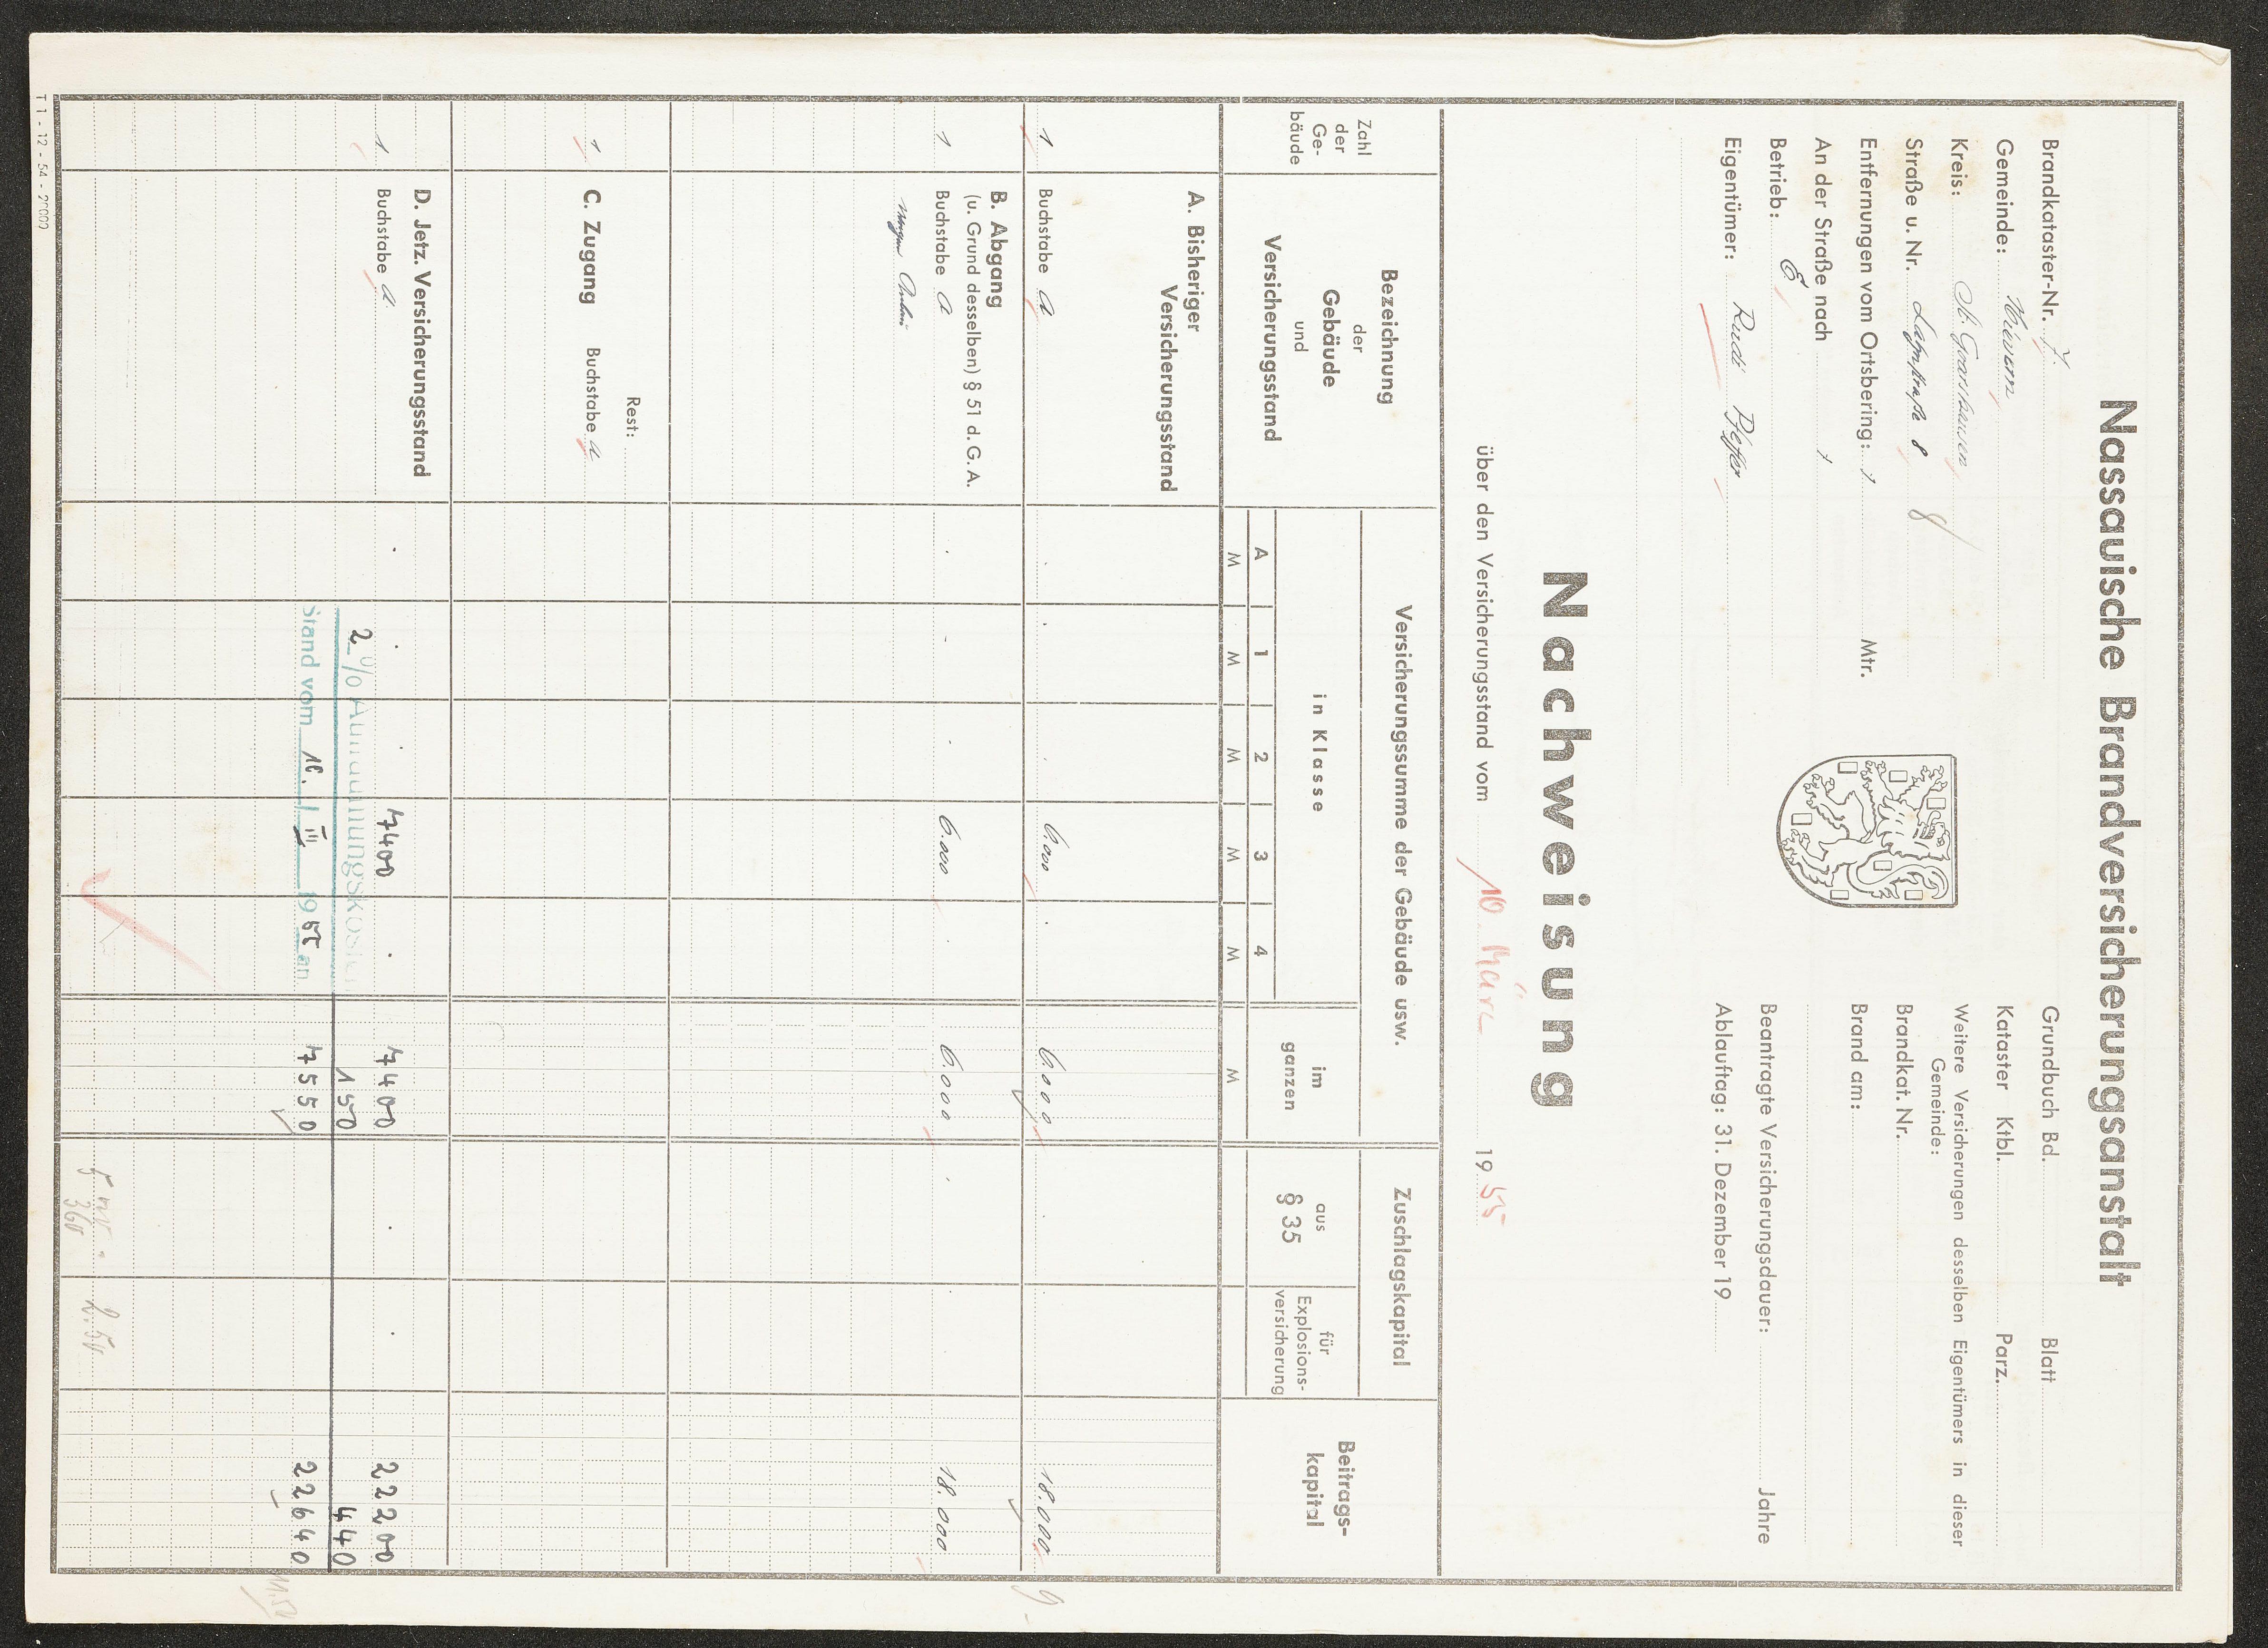 Nassauische Brandversicherungsanstalt
Brandkataster-Nr. 7.
Gemeinde: Nievern
Kreis: St. Goarshausen
Straße u. Nr. Lahnstraße 8
8
Entfernungen vom Ortsbering: Mtr.
An der Straße nach
Betrieb: E
Eigentümer: Rudi
Grundbuch Bd. Blatt
Kataster Ktbl. Parz.
Weitere Versicherungen desselben Eigentümers in dieser
Gemeinde:
Brandkat. Nr.
Brand am:
Beantragte Versicherungsdauer: Jahre
Ablauftag: 31. Dezember 19
Nachweisung
über den Versicherungsstand vom 10. März 1955
Zahl der Ge-bäude
Bezeichnung der Gebäude und Versicherungsstand
Versicherungssumme der Gebäude usw.
in Klasse
A 1 2 3 4
im ganzen
M M M M M M
Zuschlagskapital
aus § 35
für Explosions-versicherung
Beitrags-kapital
A. Bisheriger
Versicherungsstand
1 Buchstabe a 6.000 6.000 18.000
9.-
B. Abgang
(u. Grund desselben) § 51 d. G. A.
1 Buchstabe a 6.000 6.000 18.000
wegen
Rest:
1 C. Zugang Buchstabe a
D. Jetz. Versicherungsstand
1 Buchstabe a 7400 7400 22200
2 % Aufräumungskosten 150 440
Stand vom 10. III 1955 an 7550 22640
11.50
5
360
2.50
T 1 - 12 - 54 - 20000